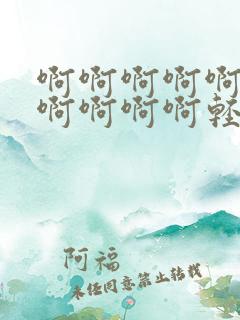 啊啊啊啊啊
啊啊啊啊轻
阿福
未经同意禁止转载